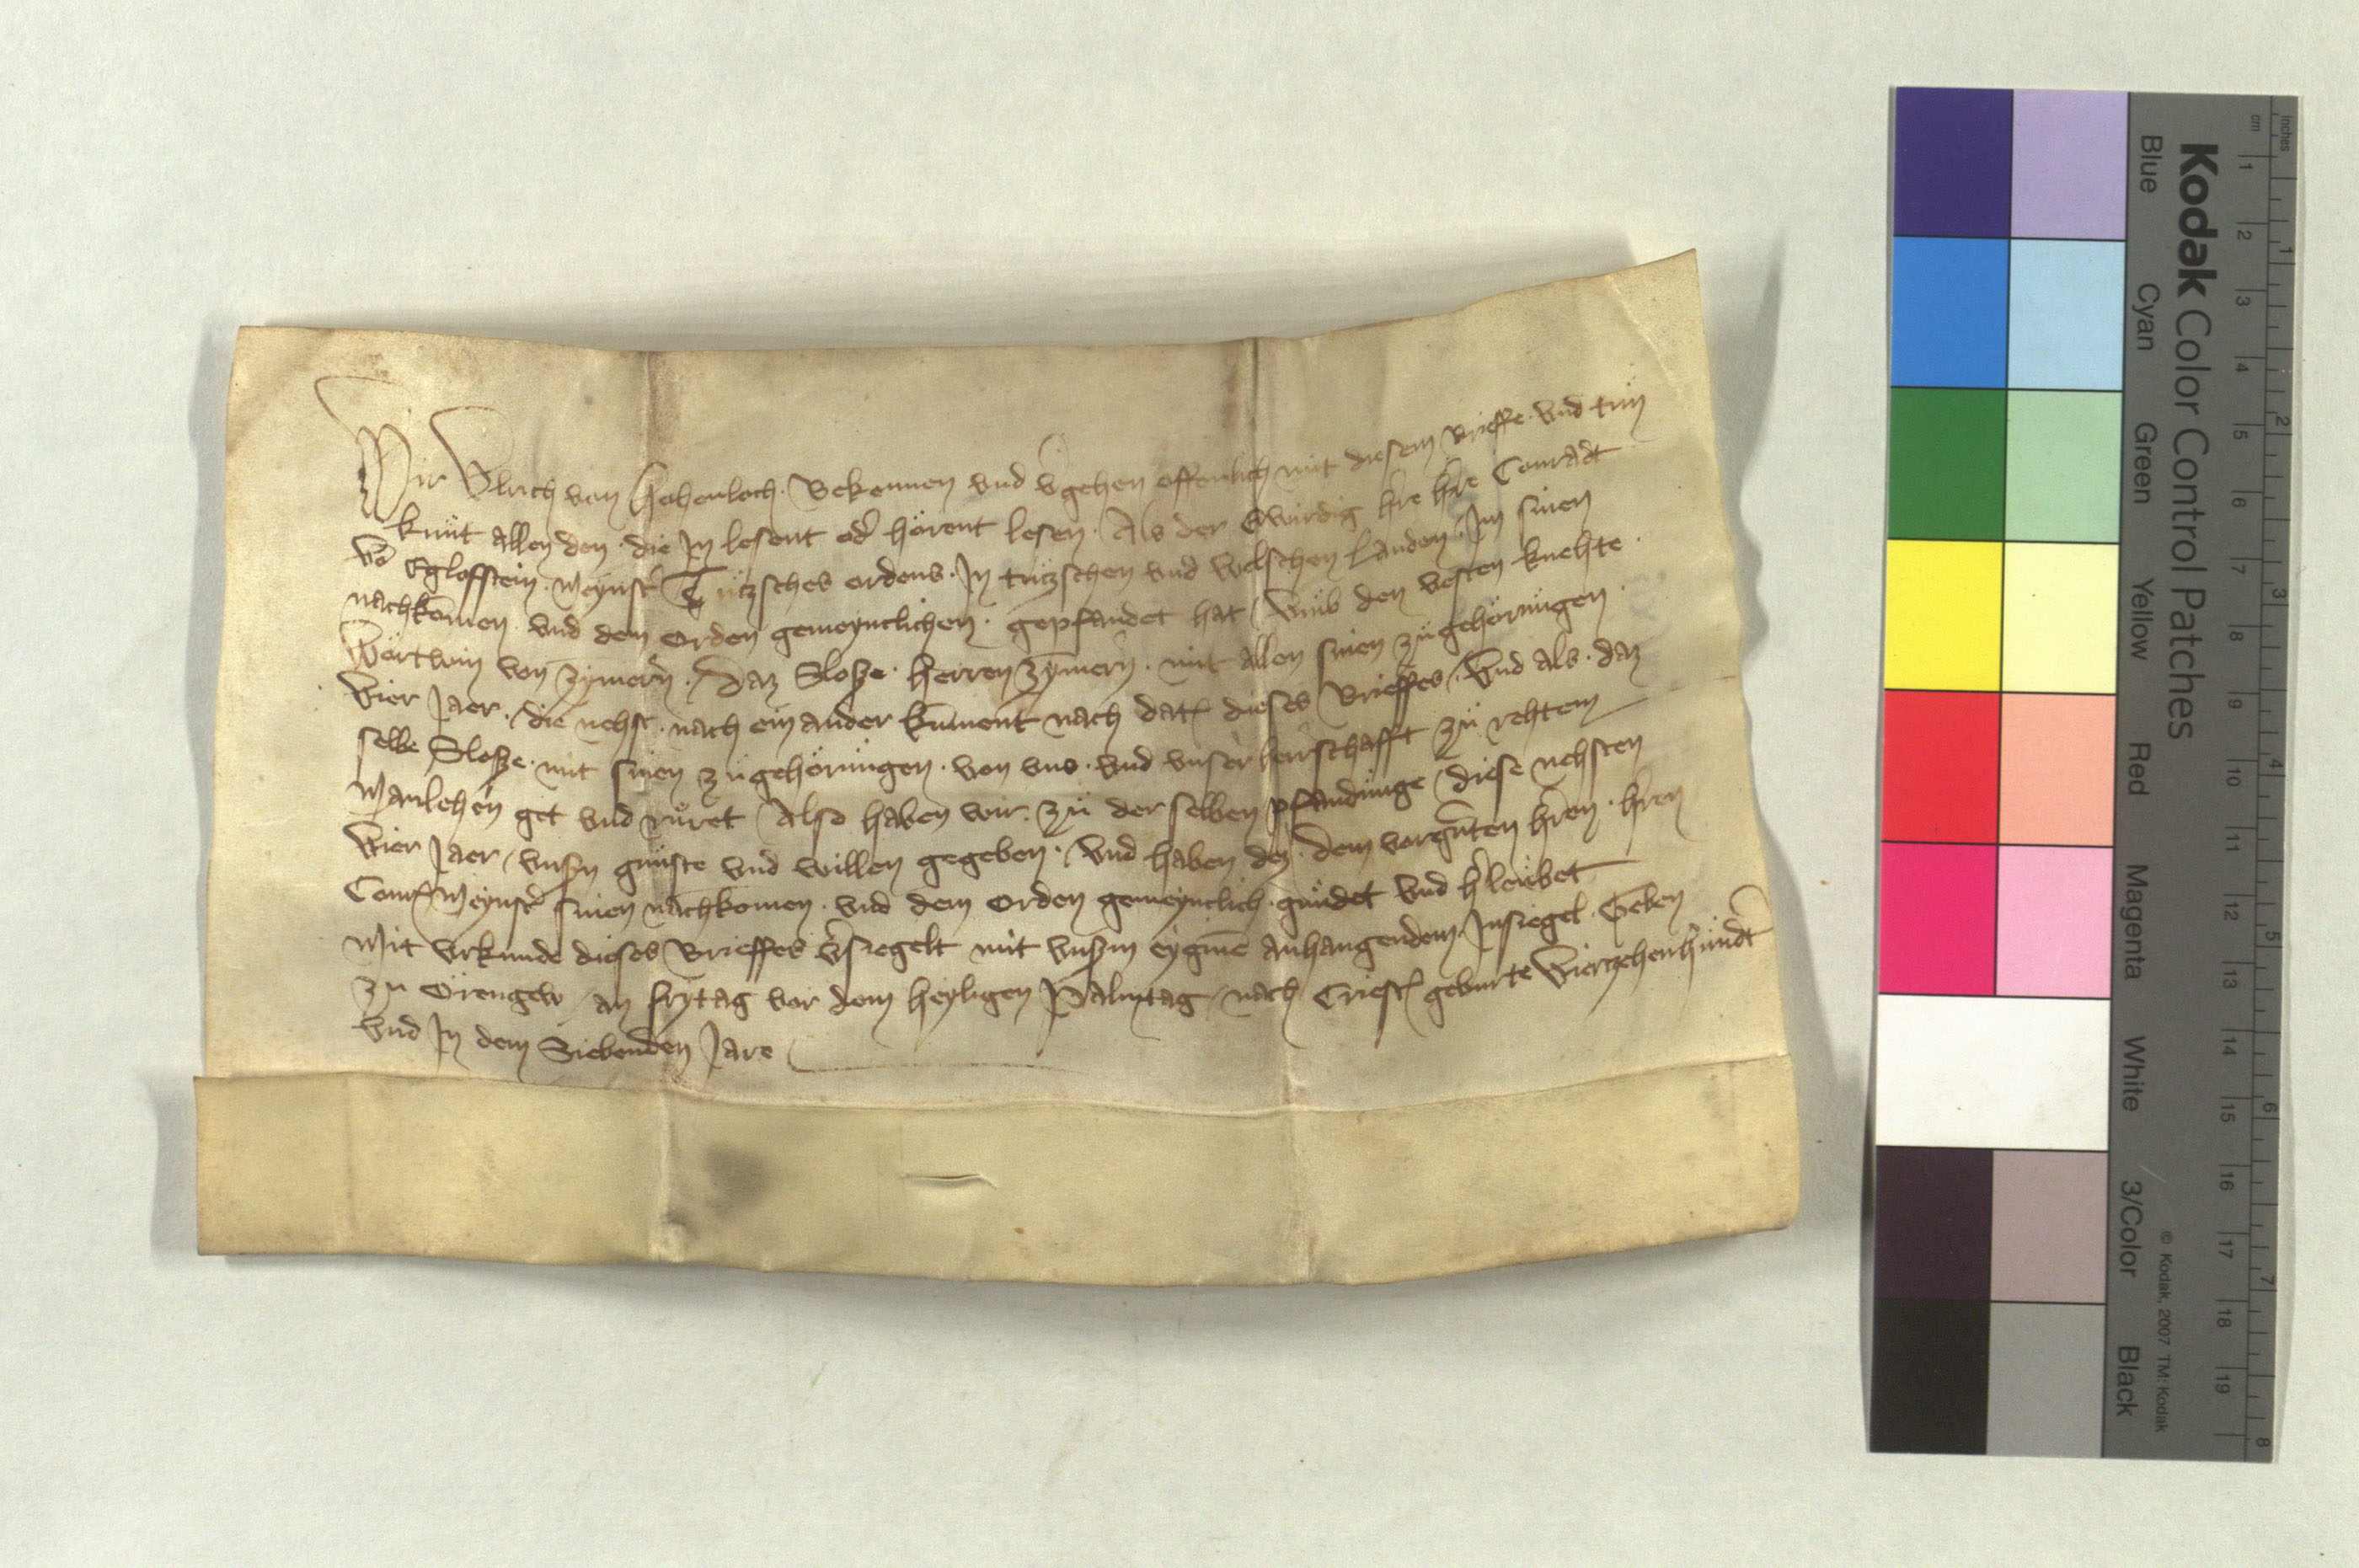 Wir Vlrich von Hohenloch · Bekennen vnd v̾gehen offenlich mit diesem brieffe · vnd tuͤn
kuͤnt allen den · die Jn lesent od̾ hoͤrent lesen · Als der Erwirdig h̾re h̾re Conradt
vō Eglofstein · Meynst̾ Tuͤtzsches ordens · Jn tuͤtzschen vnd welschen landen · Jm sinen
nachkōmen · vnd dem Orden gemeynclichen · gepfandet hat / vmb den vesten knehte ·
Woͤrtwin von Zȳmern̄ · / Daz Sloße · Herren Zȳmern̄ · mit allen sinen zuͤgehoͤruͤngen ·
Vier Jaer · / die nehst · nach ein ander kūment nach dat̾ dieses brieffes / · Vnd als · daz
selbe Sloße · mit sinen zuͤgehoͤruͤngen · von vns · vnd vnser herrschafft zuͤ rehtem
Manlehen get vnd ruͤret / Also haben wir · zuͤ der selben pfanduͤnge / diese nehsten
Vier Jaer / vnßn guͤnste vnd willen gegeben · / Vnd haben den · dem vorgn̄ten h̾ren · h̾ren
Conr̾ Meynst̾ sinen nachkōmen · vnd dem Orden gemeynclich · guͤndet vnd h̾leubet
Mit vrkunde dieses brieffes v̾siegelt mit vnßm eygine̅ anhangendem · Jnsiegel · Geben
zu Oͤrengew / an frytag vor dem heyligen Palmtag / nach Crist̾ geburte Vierzehenhuͤndt̾
vnd Jn dem Siebenden Jare
Kodak Color Control Patches
Blue Cyan Green Yellow Red Magenta White 3/Color Black
© Kodak, 2007 TM: Kodak
inches 1 2 3 4 5 6 7 8
cm 1 2 3 4 5 6 7 8 9 10 11 12 13 14 15 16 17 18 19